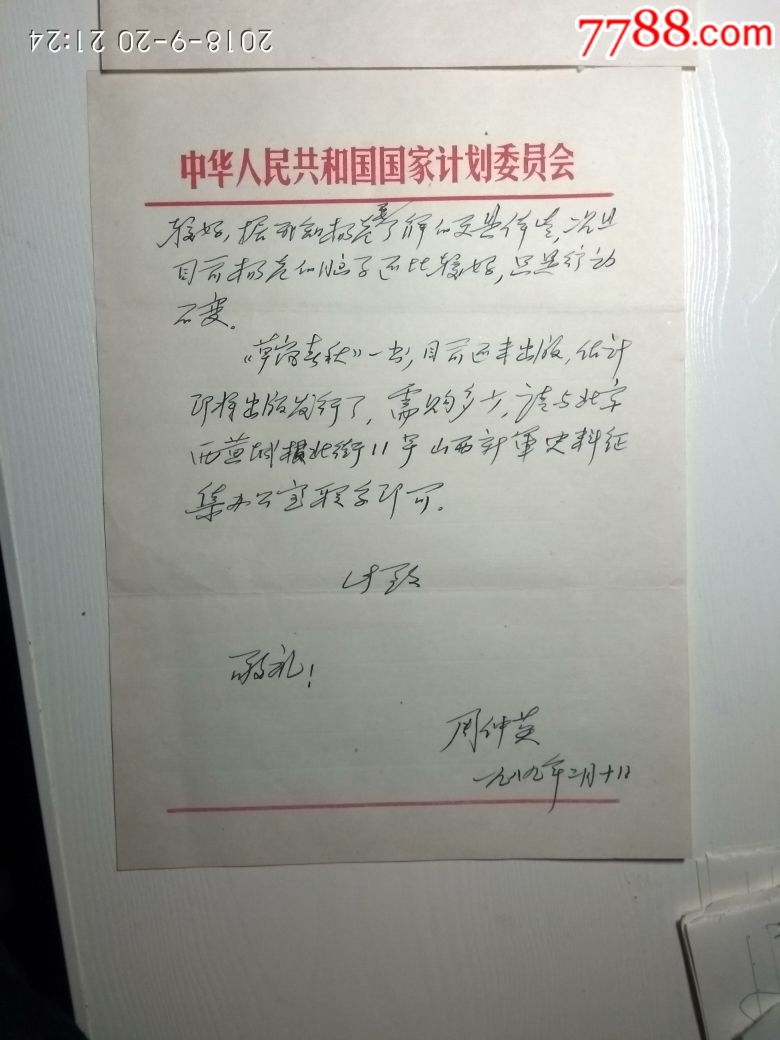 2018-9-20 21:24
7788.com
中华人民共和国国家计划委员会
较好，据我知杨老了解的更具体些，况且
目前杨老的脑子还比较好，只是行动
不变。
《草岚春秋》一书，目前还未出版，估计
即将出版发行了，需购多少，请与北京
西黄城根北街11号山西新军史料征
集办公室联系即可。
此致
敬礼！
周仲英
一九八九年二月十日